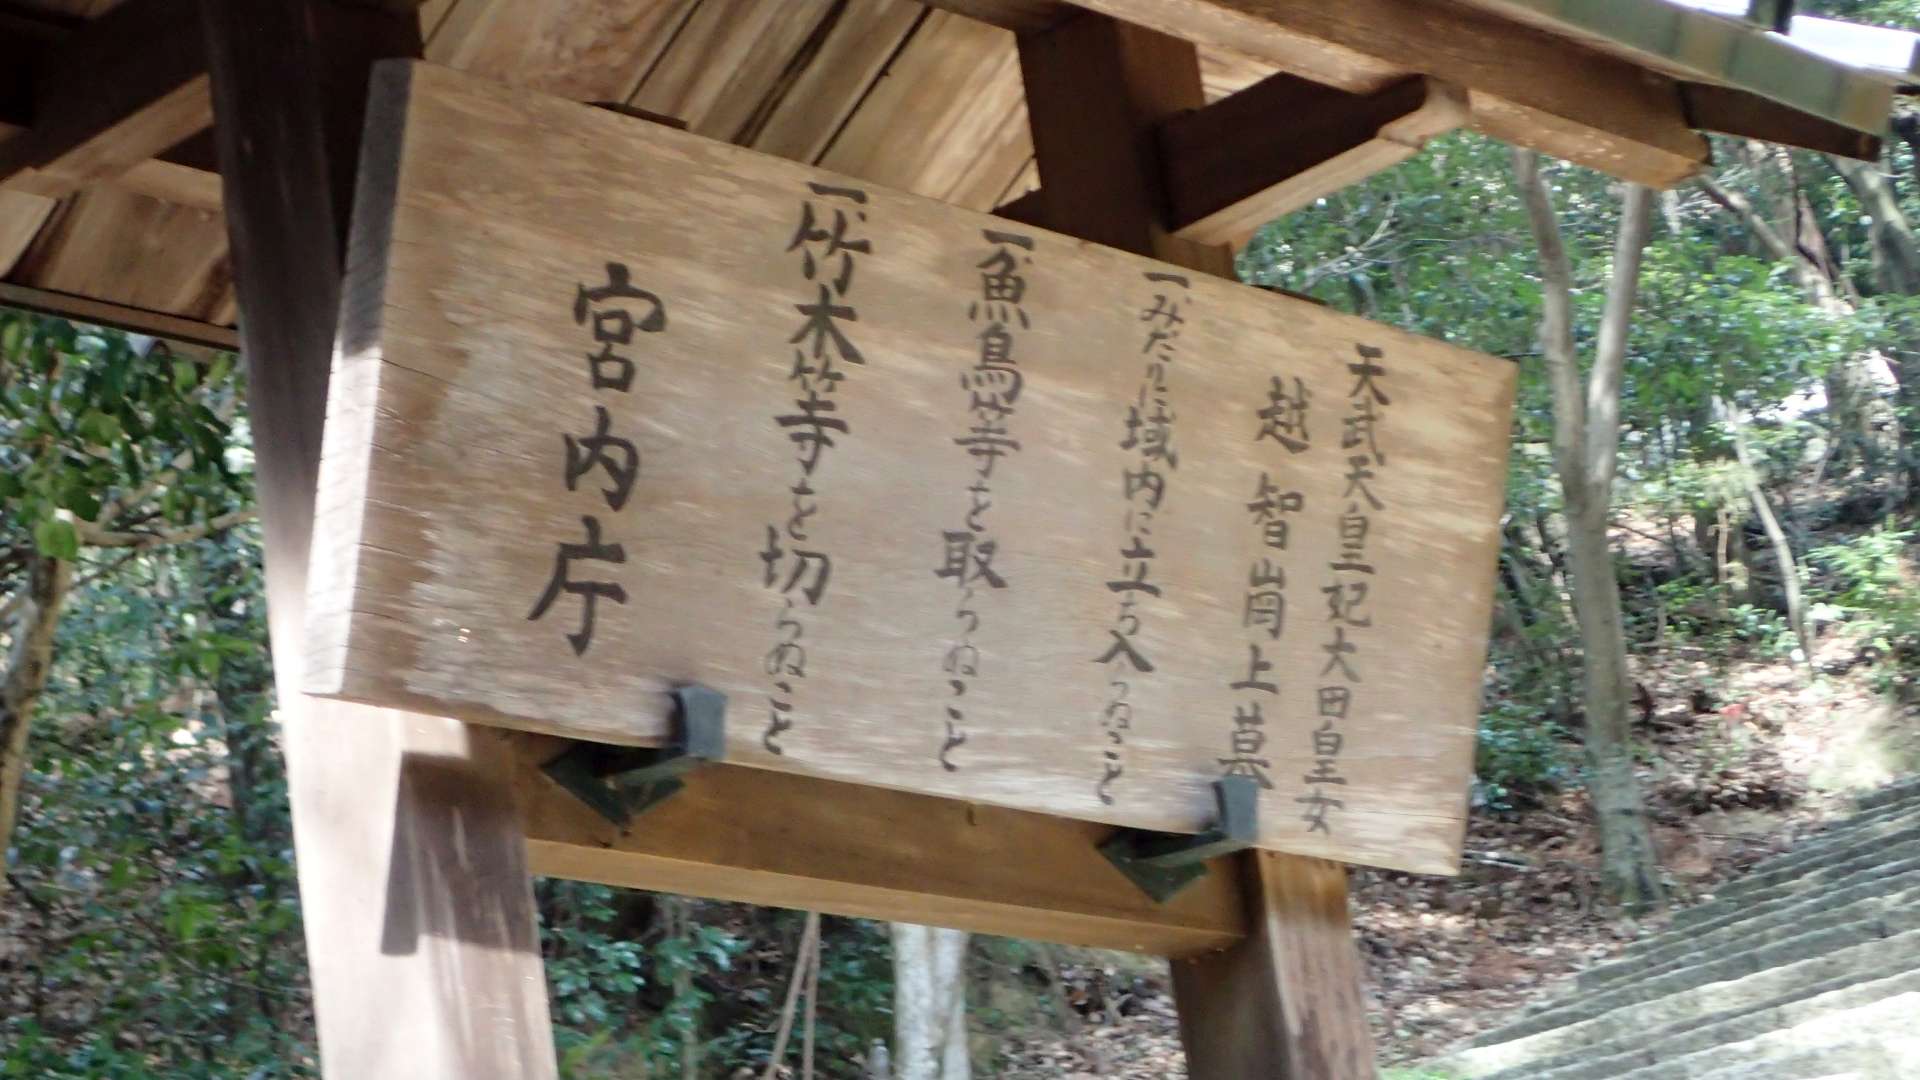 天武天皇妃大田皇女
越智崗上墓
一、みだりに域内に立ち入らぬこと
一、魚鳥等を取らぬこと
一、竹木等を切らぬこと
宮内庁